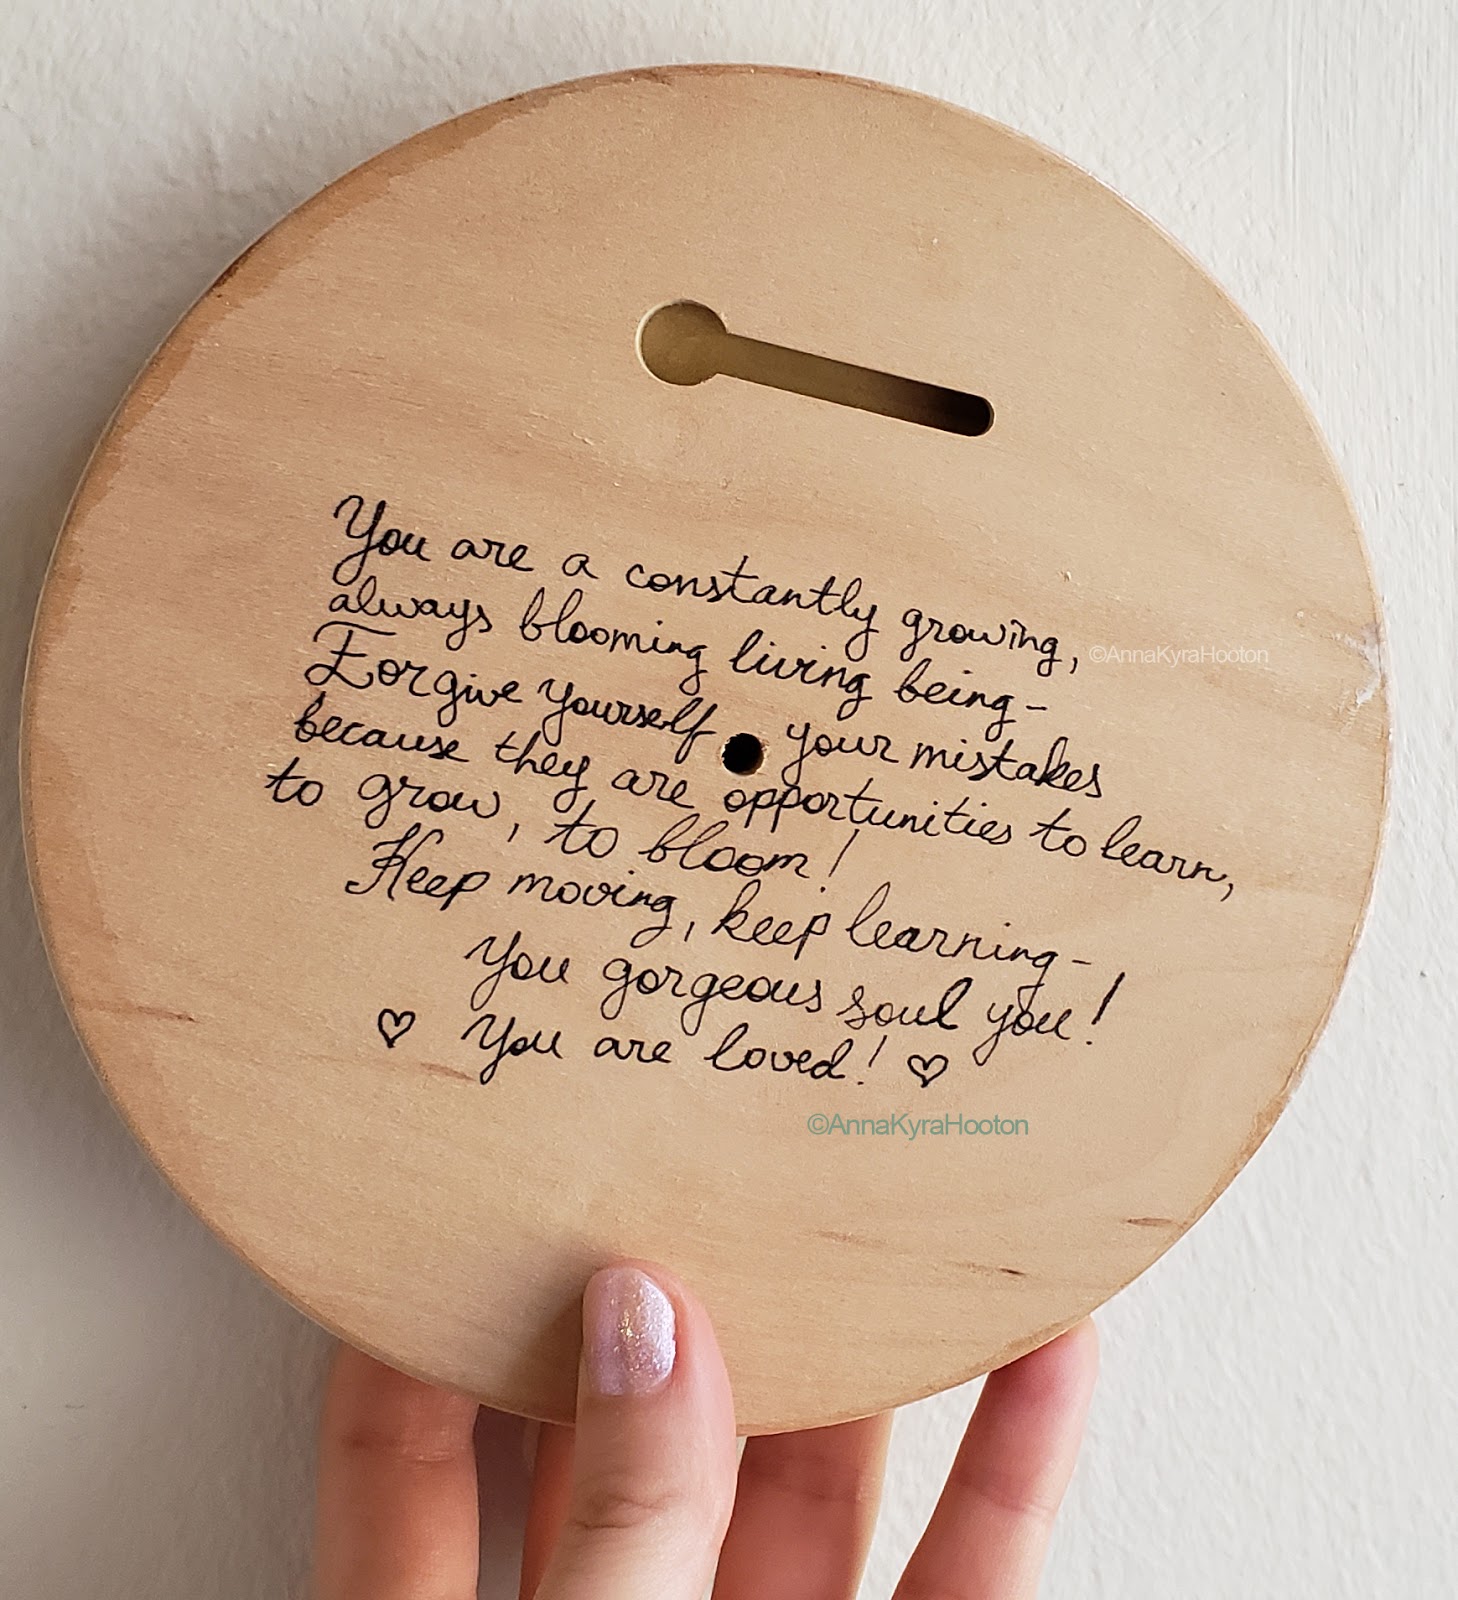 You are a constantly growing,
©AnnaKyraHooton
always blooming living being-
Forgive yourself your mistakes
because they are opportunities to learn,
to grow, to bloom!
Keep moving, keep learning-
You gorgeous soul you!
♡ You are loved! ♡
©AnnaKyraHooton